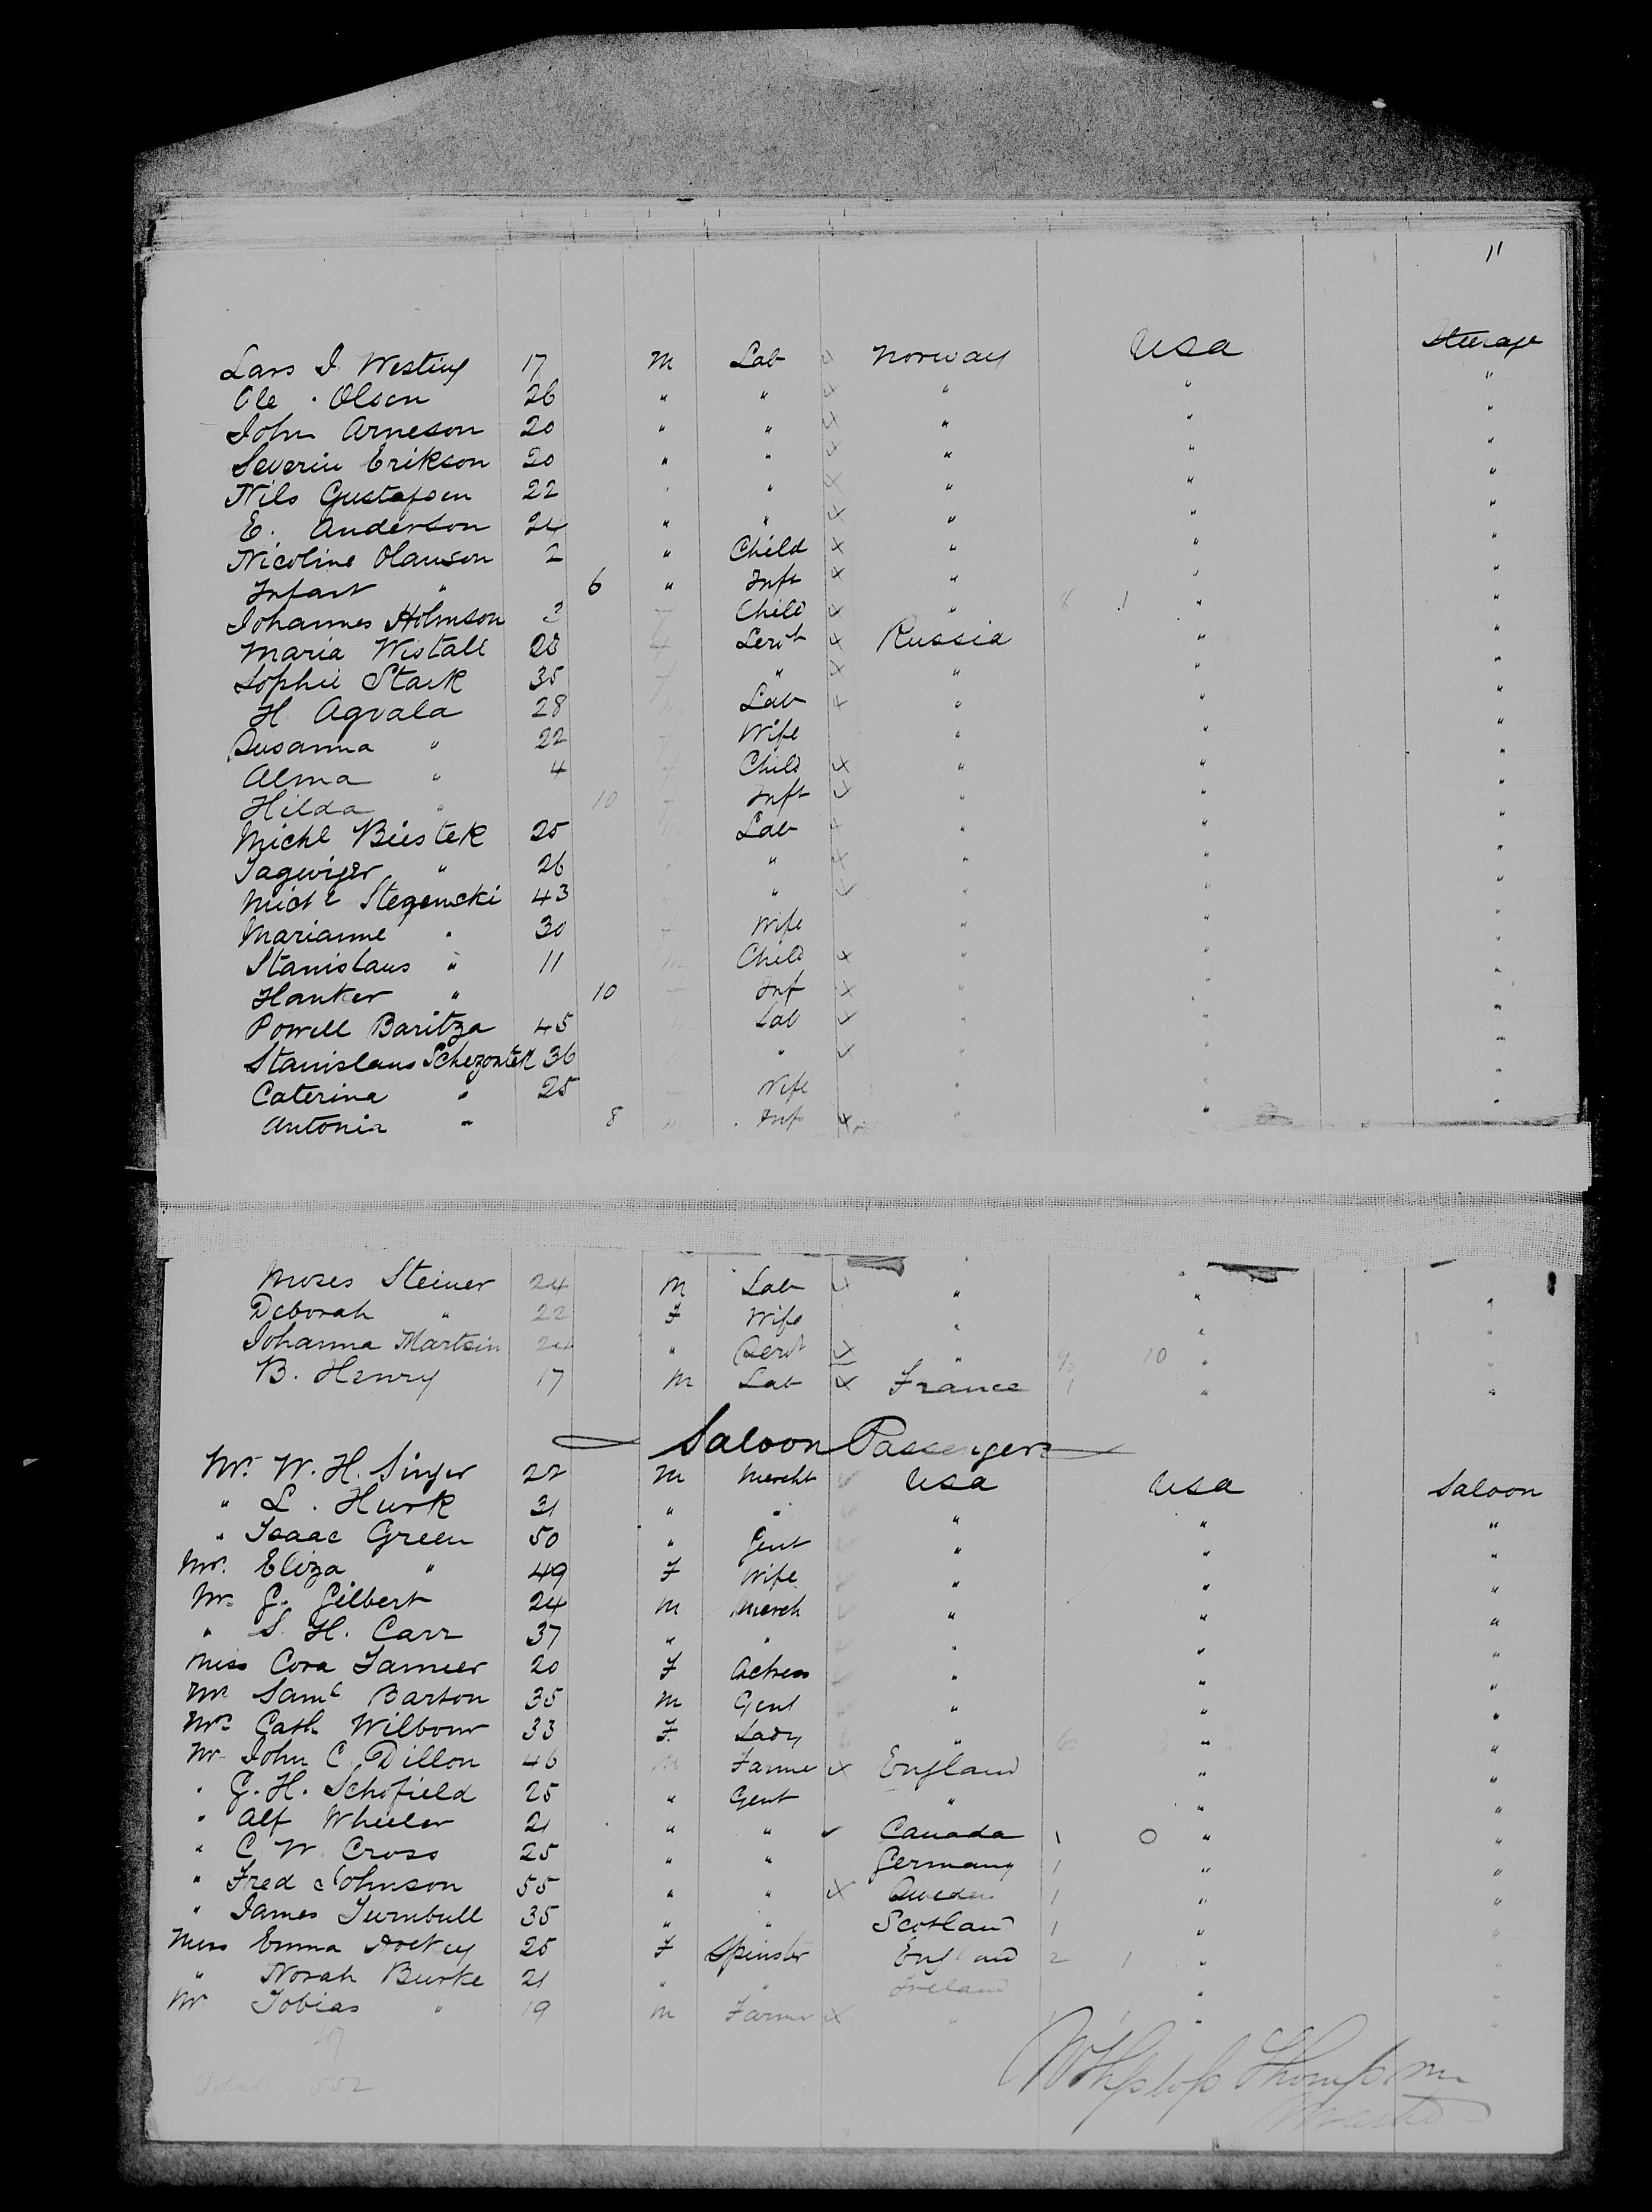 11
Lars I. Westing 17 M Lab Norway USA Steerage
Ole Olsen 26 " " " " "
John Arneson 20 " " " " "
Severin Erikson 20 " " " " "
Nils Gustafsen 22 " " " " "
E. Anderson 24 " " " " "
Nicoline Olauson 2 " Child " " "
Infant " 6 " Inft " " "
Johannes Holmson 2 f Child " 8 1 " "
Maria Wistall 28 f Servt Russia " "
Sophie Stark 35 f " " " "
H. Agvala 28 m Lab " " "
Susanna " 22 f Wife " " "
Alma " 4 f Child " " "
Hilda " 10 f Inft " " "
Michl Biestek 25 m Lab " " "
Jagwiger " 26 " " " " "
Michl Stegenski 43 " " " " "
Marianne " 30 f Wife " " "
Stanislaus " 11 m Child " " "
Hanker " 10 f Inf " " "
Powell Baritza 45 m Lab " " "
Stanislaus Schezontek 36 m " " " "
Caterina " 25 f Wife " " "
Antonia " 8 m Inf " " "
Moses Steiner 24 M Lab " " "
Deborah " 22 F Wife " " "
Johanna Martsin 24 " Servt " 10 " "
B. Henry 17 M Lab France 1 " "
Saloon Passengers
Mr. W. H. Singer 22 M Mercht USA USA Saloon
" L. Hurk 31 " " " " "
" Isaac Green 50 " Gent " " "
Mrs. Eliza " 49 F Wife " " "
Mr. G. Gilbert 24 M Merch " " "
" S. H. Carr 37 " " " " "
Miss Cora Tanner 20 F Actress " " "
Mr Saml Barton 35 M Gent " " "
Mrs Cath Wilbour 33 F. Lady " " "
Mr John C. Dillon 46 m Farmer England " "
" G. H. Schofield 25 " Gent " " "
" Alf Wheeler 21 " " Canada 1 0 " "
" C. W. Cross 25 " " Germany 1 " "
" Fred Johnson 55 " " Sweden 1 " "
" James Turnbull 35 " " Scotland 1 " "
Miss Emma 25 F Spinster England 2 1 " "
" Norah Burke 21 " " Ireland " "
Mr Tobias " 19 M Farmer " " "
Total 502
Thompson
Master